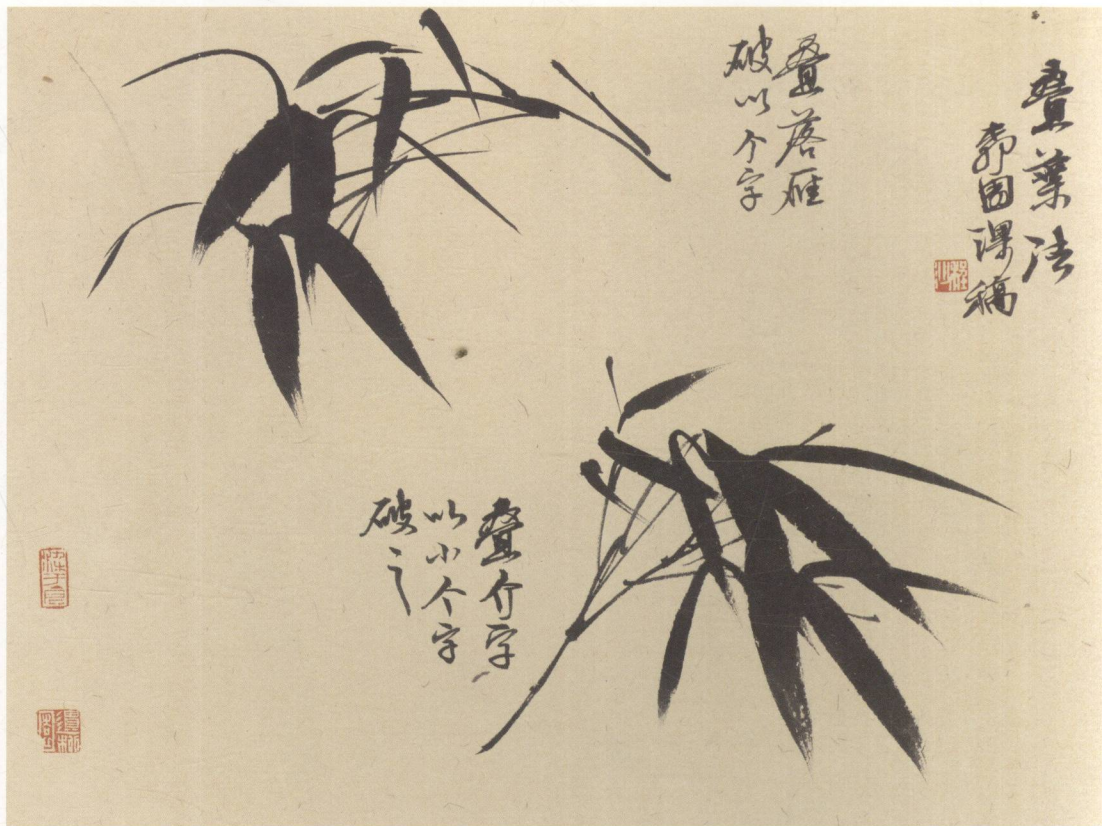 叠葉法
課稿
叠落雁
破以个字
叠介字
以小个字
破之